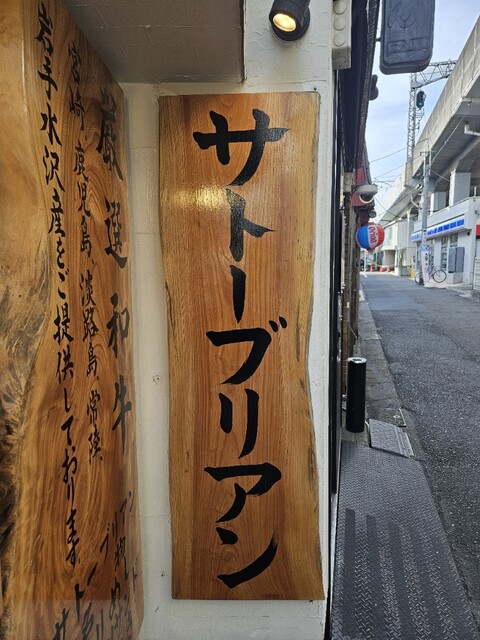 サトーブリアン
厳選和牛
宮崎、鹿児島、淡路島、常陸、
岩手水沢産をご提供しております。